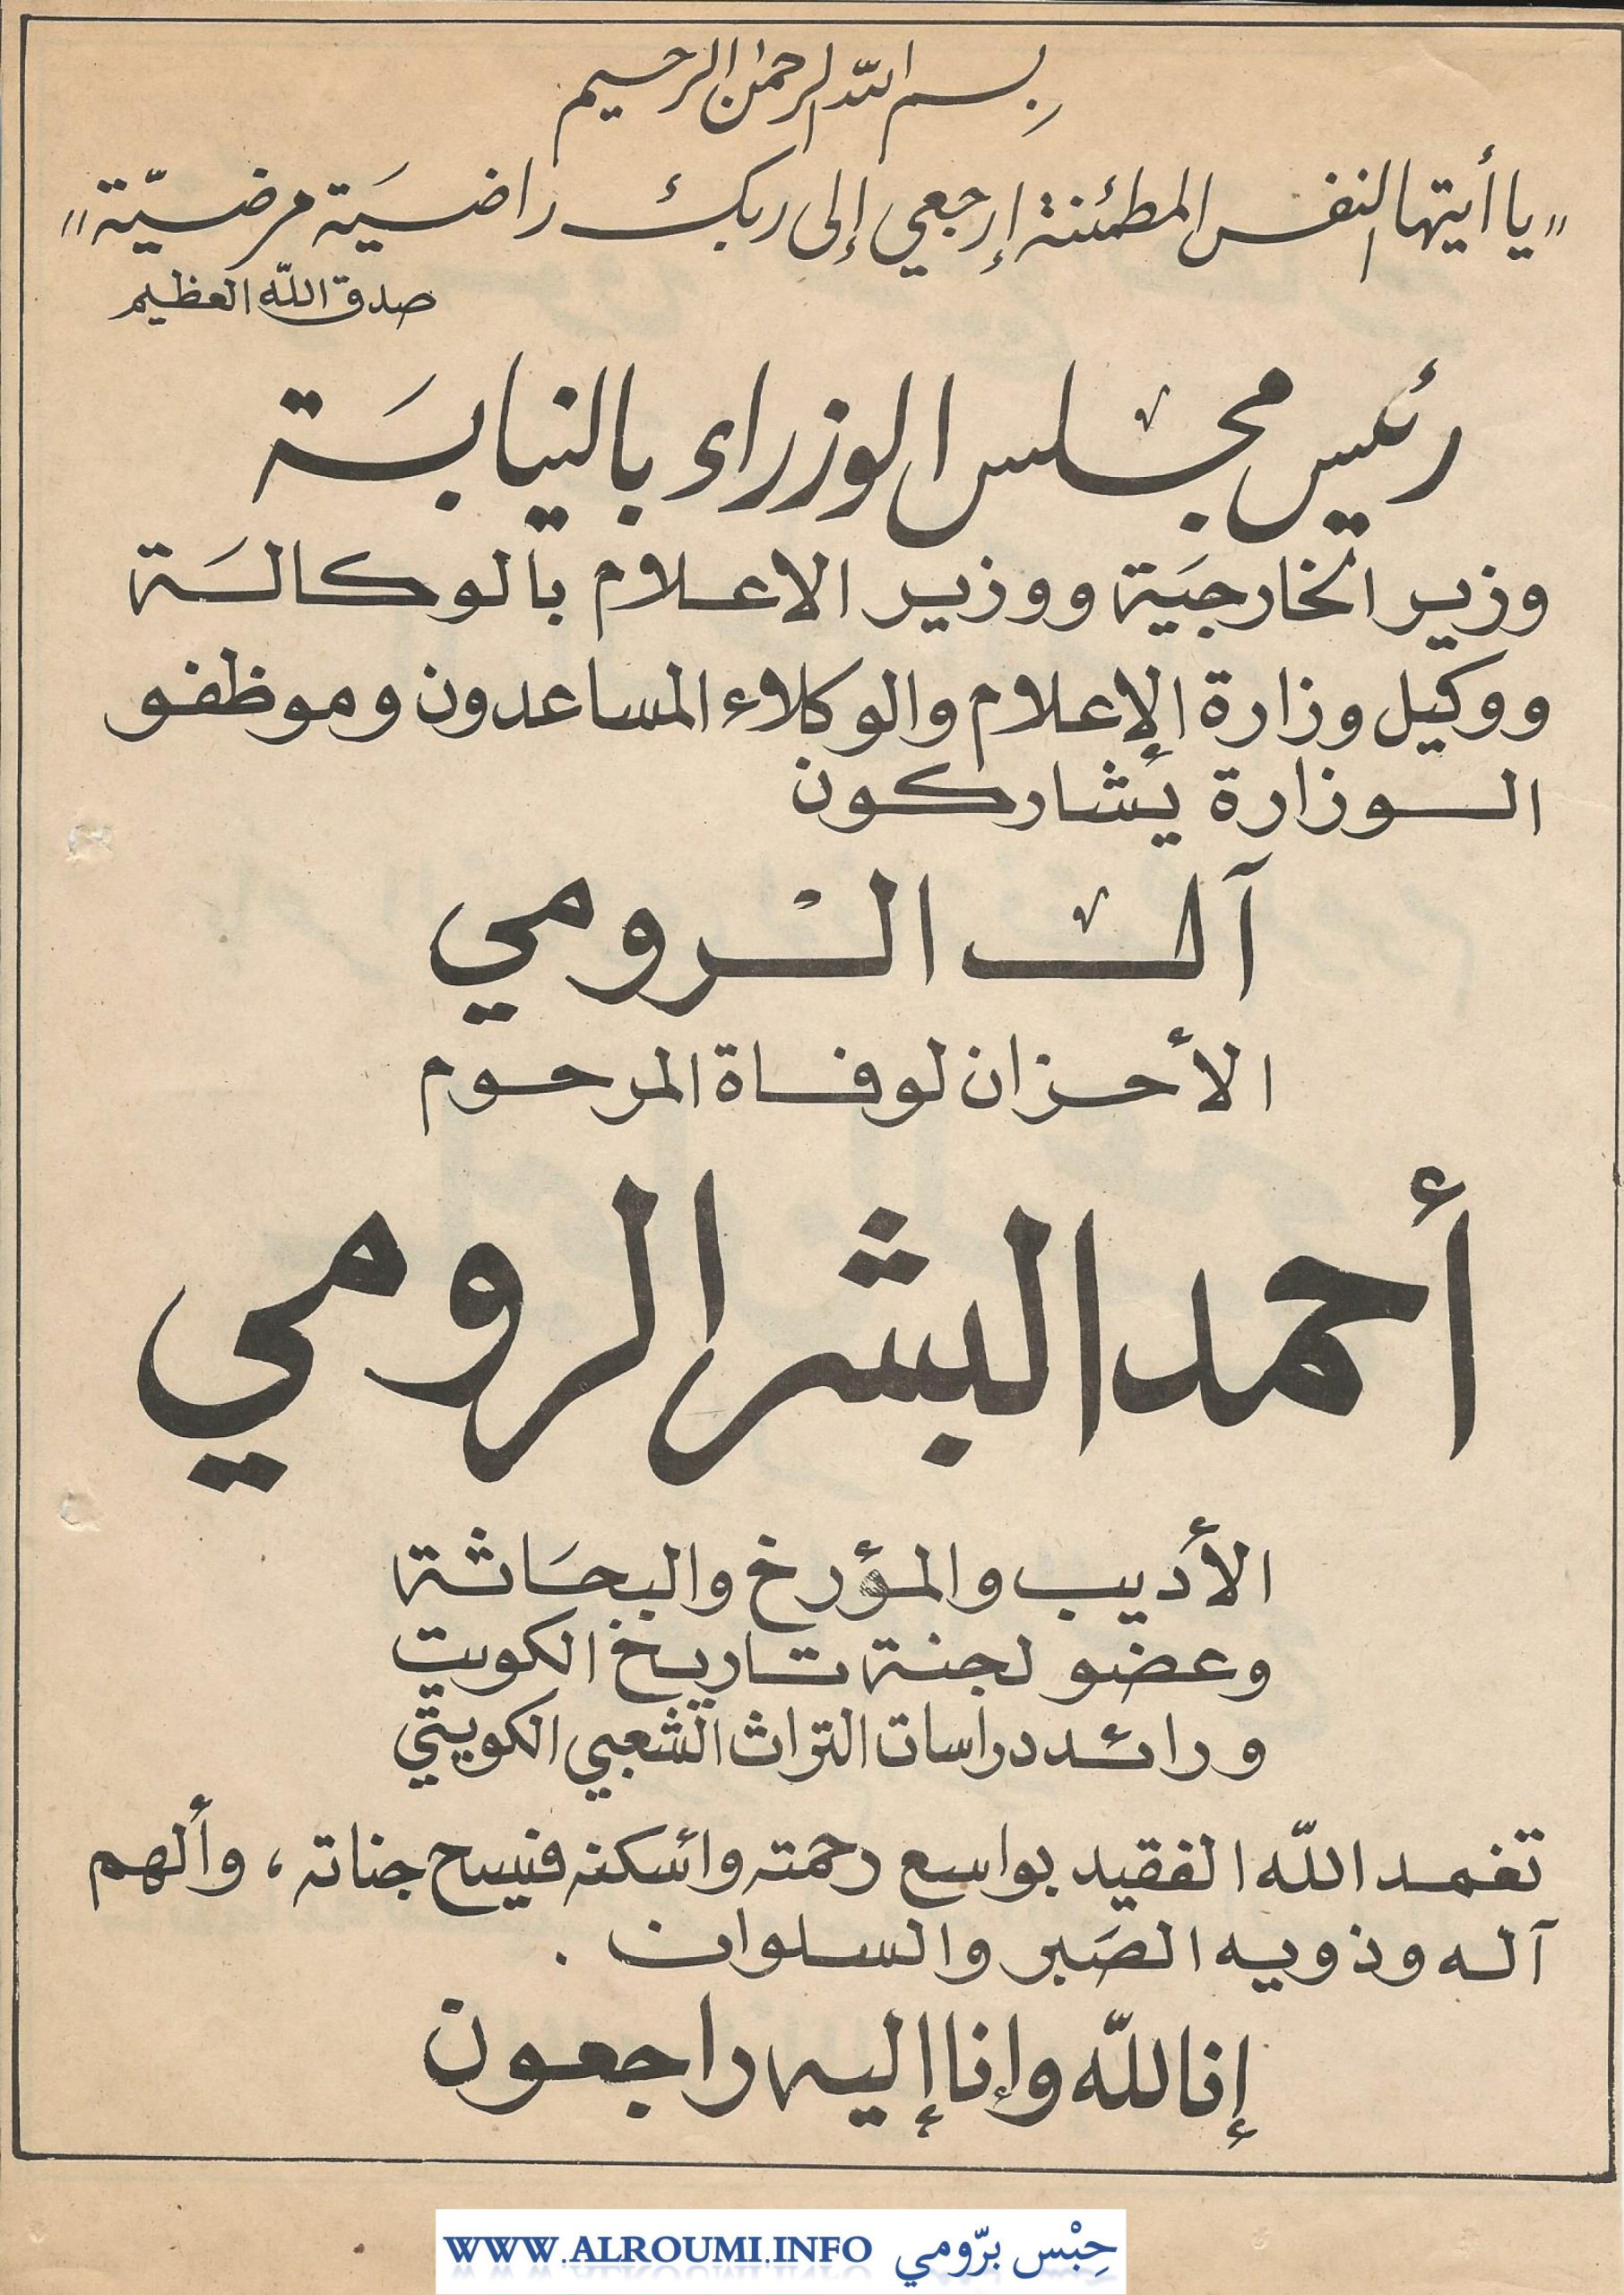 بسم الله الرحمن الرحيم
"يا أيتها النفس المطمئنة إرجعي إلى ربك راضيَة مرضيّة"
صدق الله العظيم
رئيس مجلس الوزراء بالنيابَة
وزير الخارجيَة ووزير الاعلام بالوكالَة
ووكيل وزارة الإعلام والوكلاء المساعدون وموظفو
الوزارة يشاركون
آل الرومي
الأحزان لوفاة المرحوم
أحمد البشر الرومي
الأديب والمؤرخ والبحَاثة
وعضو لجنة تاريخ الكويت
ورائد دراسات التراث الشعبي الكويتي
تغمد الله الفقيد بواسع رحمته وأسكنه فسيح جناته، وألهم
آله وذويه الصَبر والسلوان .
إنا لله وإنا إليه راجعون
WWW.ALROUMI.INFO حِبْس برّومي